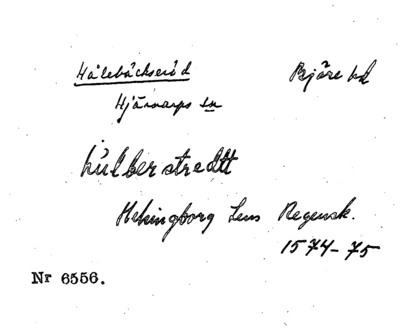 Hålebäckseröd Bjäre hd
Hjärnarps sn
hulberstredtt
Helsingborg Lens Regensk.
1574-75
Nr 6556.